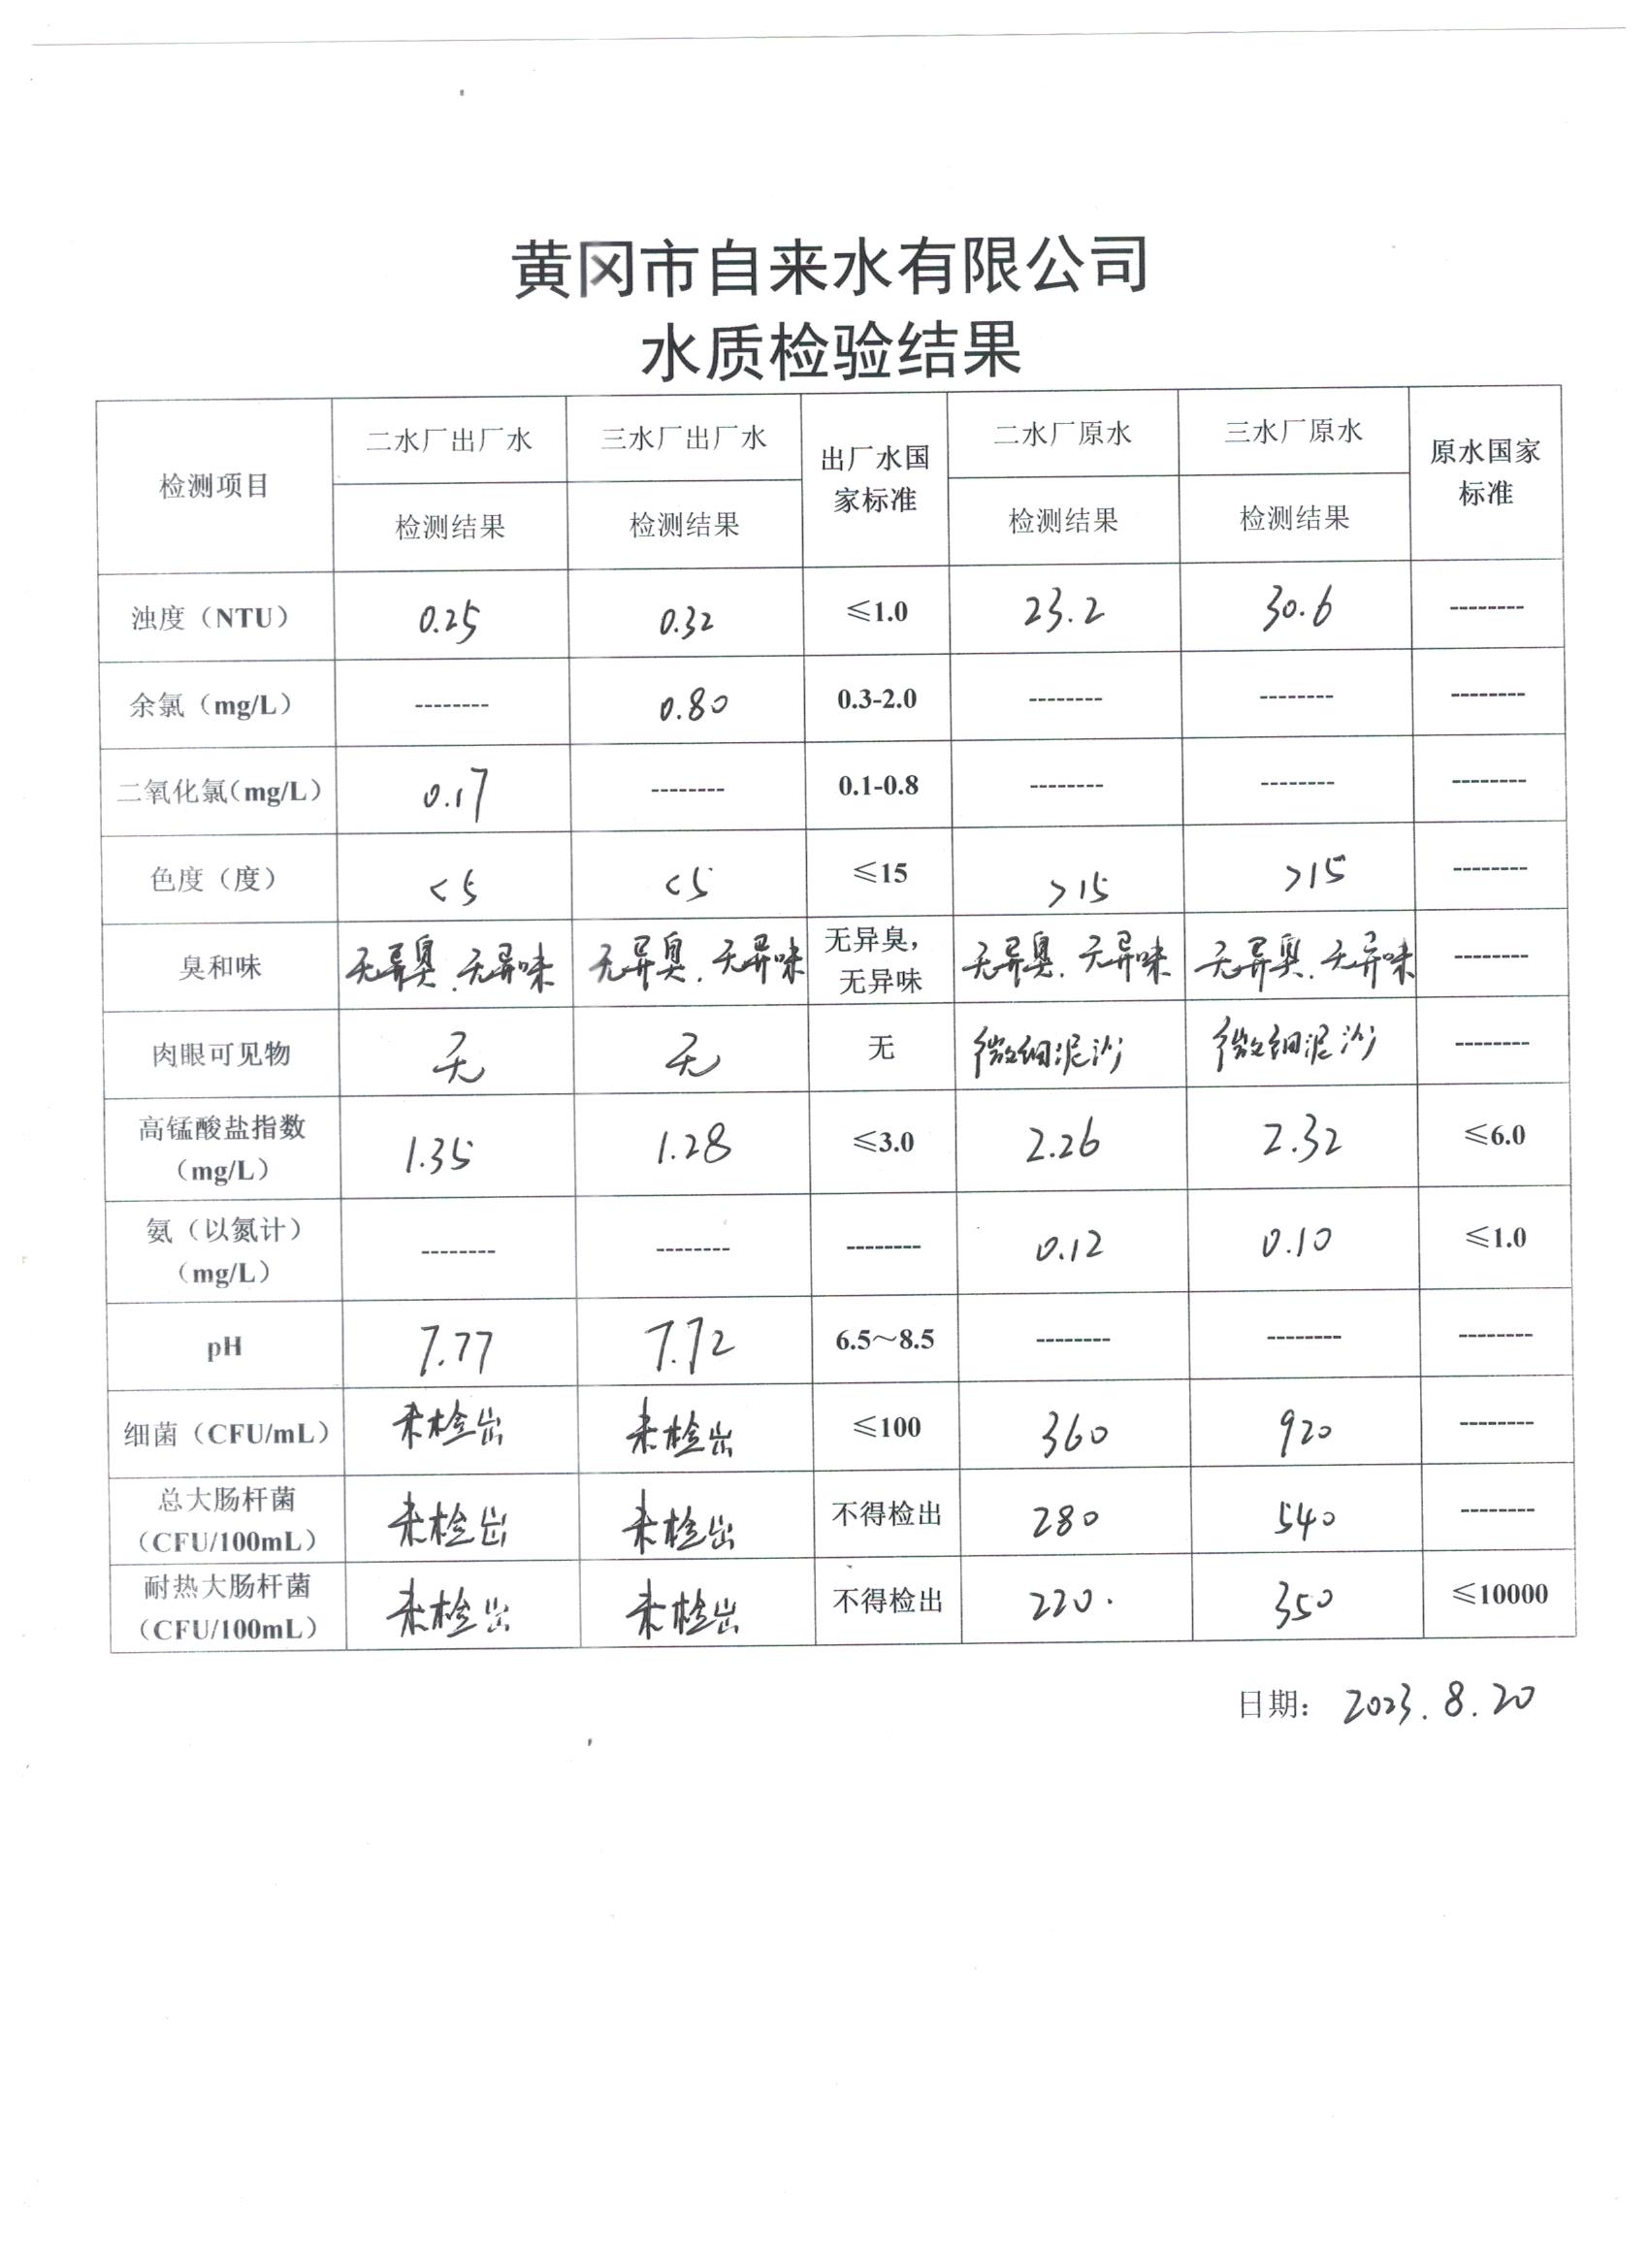 黄冈市自来水有限公司
水质检验结果
检测项目 二水厂出厂水 三水厂出厂水 出厂水国家标准 二水厂原水 三水厂原水 原水国家标准
检测结果 检测结果 检测结果 检测结果
浊度（NTU） 0.25 0.32 ≤1.0 23.2 30.6 --------
余氯（mg/L） -------- 0.80 0.3-2.0 -------- -------- --------
二氧化氯（mg/L） 0.17 -------- 0.1-0.8 -------- -------- --------
色度（度） <5 <5 ≤15 >15 >15 --------
臭和味 无异臭.无异味 无异臭.无异味 无异臭，无异味 无异臭.无异味 无异臭.无异味 --------
肉眼可见物 无 无 无 微细泥沙 微细泥沙 --------
高锰酸盐指数（mg/L） 1.35 1.28 ≤3.0 2.26 2.32 ≤6.0
氨（以氮计）（mg/L） -------- -------- -------- 0.12 0.10 ≤1.0
pH 7.77 7.72 6.5～8.5 -------- -------- --------
细菌（CFU/mL） 未检出 未检出 ≤100 360 920 --------
总大肠杆菌（CFU/100mL） 未检出 未检出 不得检出 280 540 --------
耐热大肠杆菌（CFU/100mL） 未检出 未检出 不得检出 220. 350 ≤10000
日期： 2023.8.20